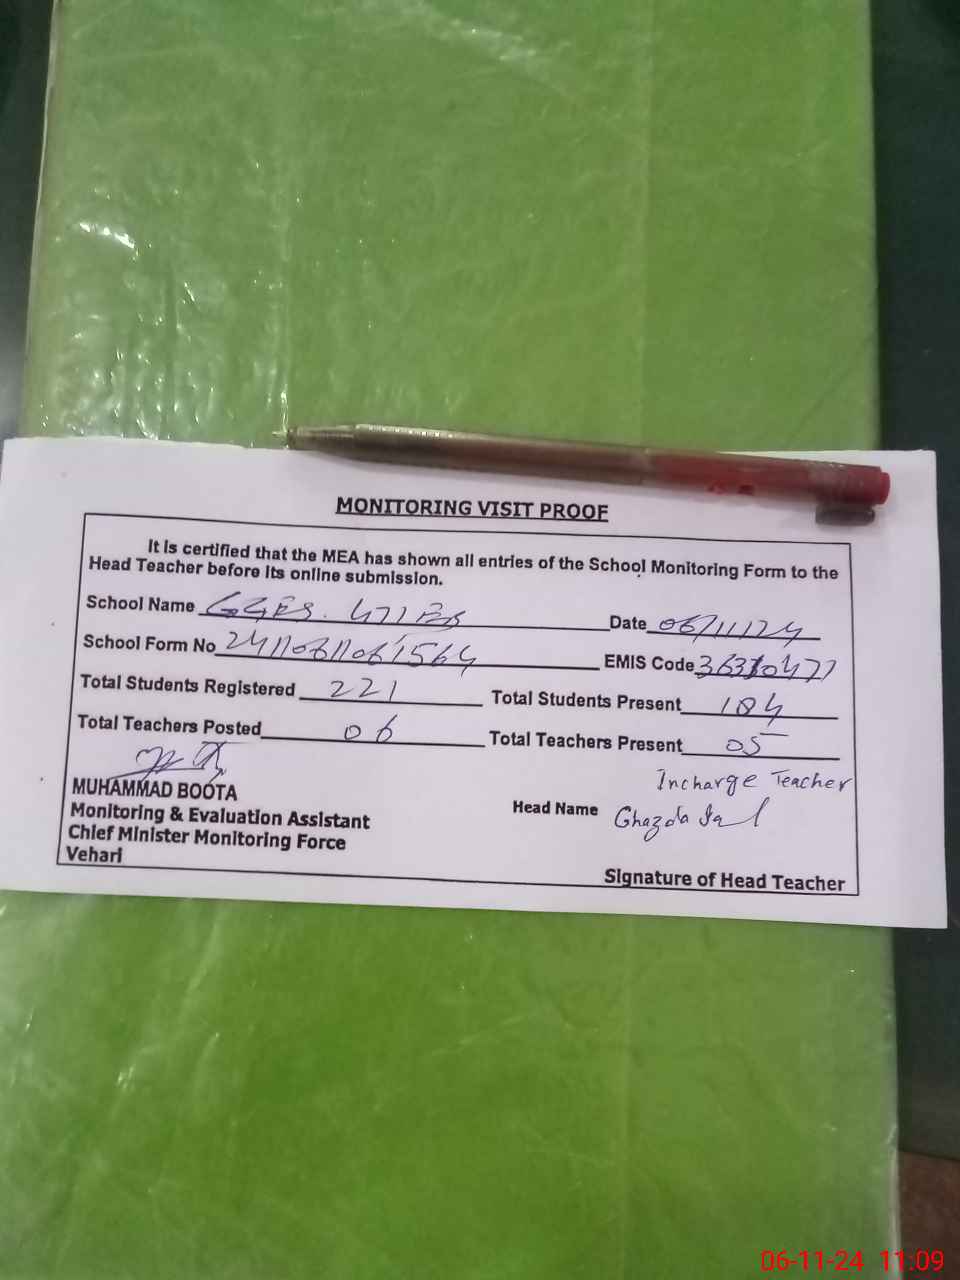 MONITORING VISIT PROOF
It is certified that the MEA has shown all entries of the School Monitoring Form to the
Head Teacher before its online submission.
School Name GGES. 471 EB Date 06/11/24
School Form No EMIS Code
Total Students Registered 221 Total Students Present 184
Total Teachers Posted 06 Total Teachers Present 05
Incharge Teacher
MUHAMMAD BOOTA
Head Name Ghazala
Monitoring & Evaluation Assistant
Chief Minister Monitoring Force
Vehari
Signature of Head Teacher
06-11-24 11:09